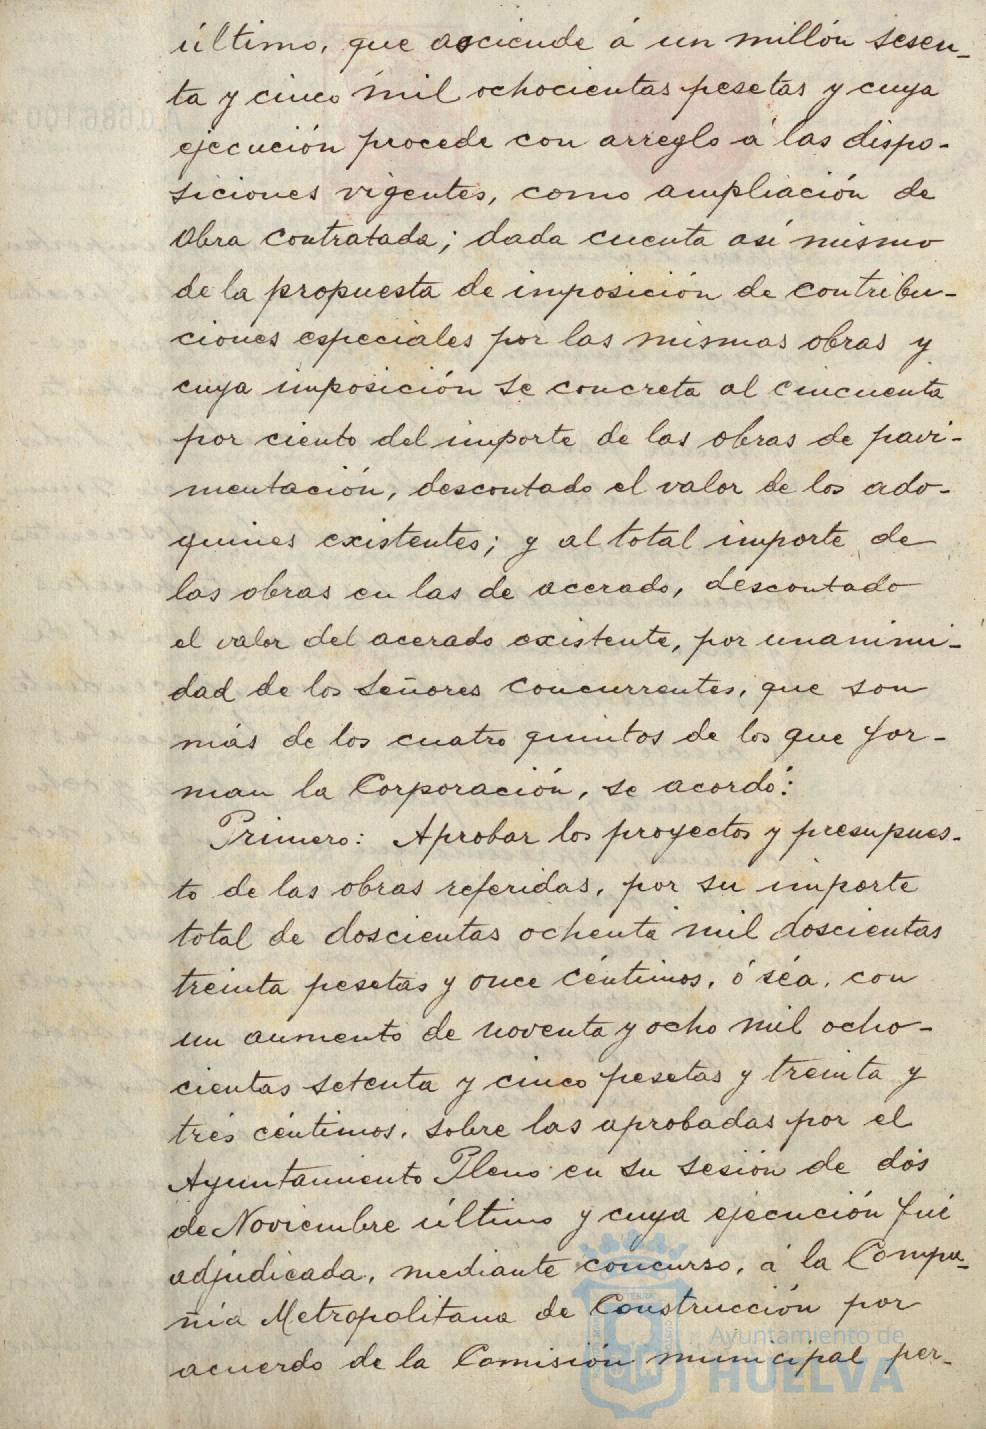 último, que asciende á un millón sesen-
ta y cinco mil ochocientas pesetas y cuya
ejecución procede con arreglo á las dispo-
siciones vigentes, como ampliación de
obra contratada; dada cuenta así mismo
de la propuesta de imposición de contribu-
ciones especiales por las mismas obras y
cuya imposición se concreta al cincuenta
por ciento del importe de las obras de pavi-
mentación, descontado el valor de los ado-
quines existentes; y al total importe de
las obras en las de acerado, descontado
el valor del acerado existente, por unanimi-
dad de los señores concurrentes, que son
más de los cuatro quintos de los que for-
man la Corporación, se acordó:
Primero: Aprobar los proyectos y presupues-
to de las obras referidas, por su importe
total de doscientas ochenta mil doscientas
treinta pesetas y once céntimos, ó séa, con
un aumento de noventa y ocho mil ocho-
cientas setenta y cinco pesetas y treinta y
trés céntimos, sobre las aprobadas por el
Ayuntamiento Pleno en su sesión de dós
de Noviembre último y cuya ejecución fué
adjudicada, mediante concurso, á la Compa-
ñía Metropolitana de Construcción por
acuerdo de la Comisión municipal per-
Ayuntamiento de
HUELVA